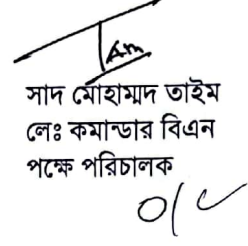 সাদ মোহাম্মদ তাইম
লেঃ কমান্ডার বিএন
পক্ষে পরিচালক